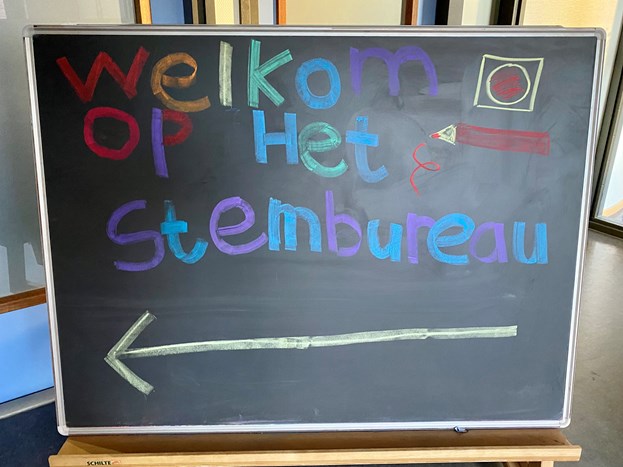 Welkom
Op Het
Stembureau
SCHILTE